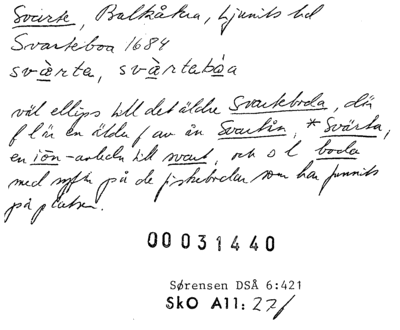 Svarte, Balkåkra, Ljunits hd
Svarteboa 1684
svàrta, svàrtabàa
väl ellips till det äldre Svarteboda, där
f l är en äldre f av ån Svartån, *Svärta,
en iōn-avledn till svart, och s l boda
med syftn på de fiskebodar som har funnits
på platsen.
00031440
Sørensen DSÅ 6:421
SkO A11: 27f